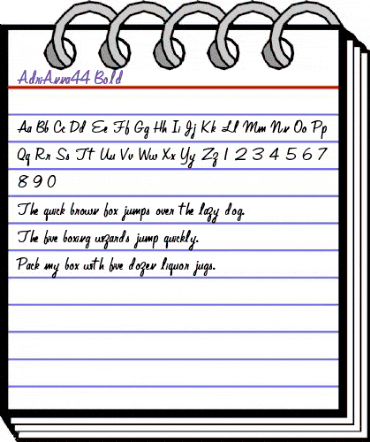 AdriAnna44 Bold
Aa Bb Cc Dd Ee Ff Gg Hh Ii Jj Kk Ll Mm Nn Oo Pp
Qq Rr Ss Tt Uu Vv Ww Xx Yy Zz 1 2 3 4 5 6 7
8 9 0
The quick brown fox jumps over the lazy dog.
The five boxing wizards jump quickly.
Pack my box with five dozen liquor jugs.